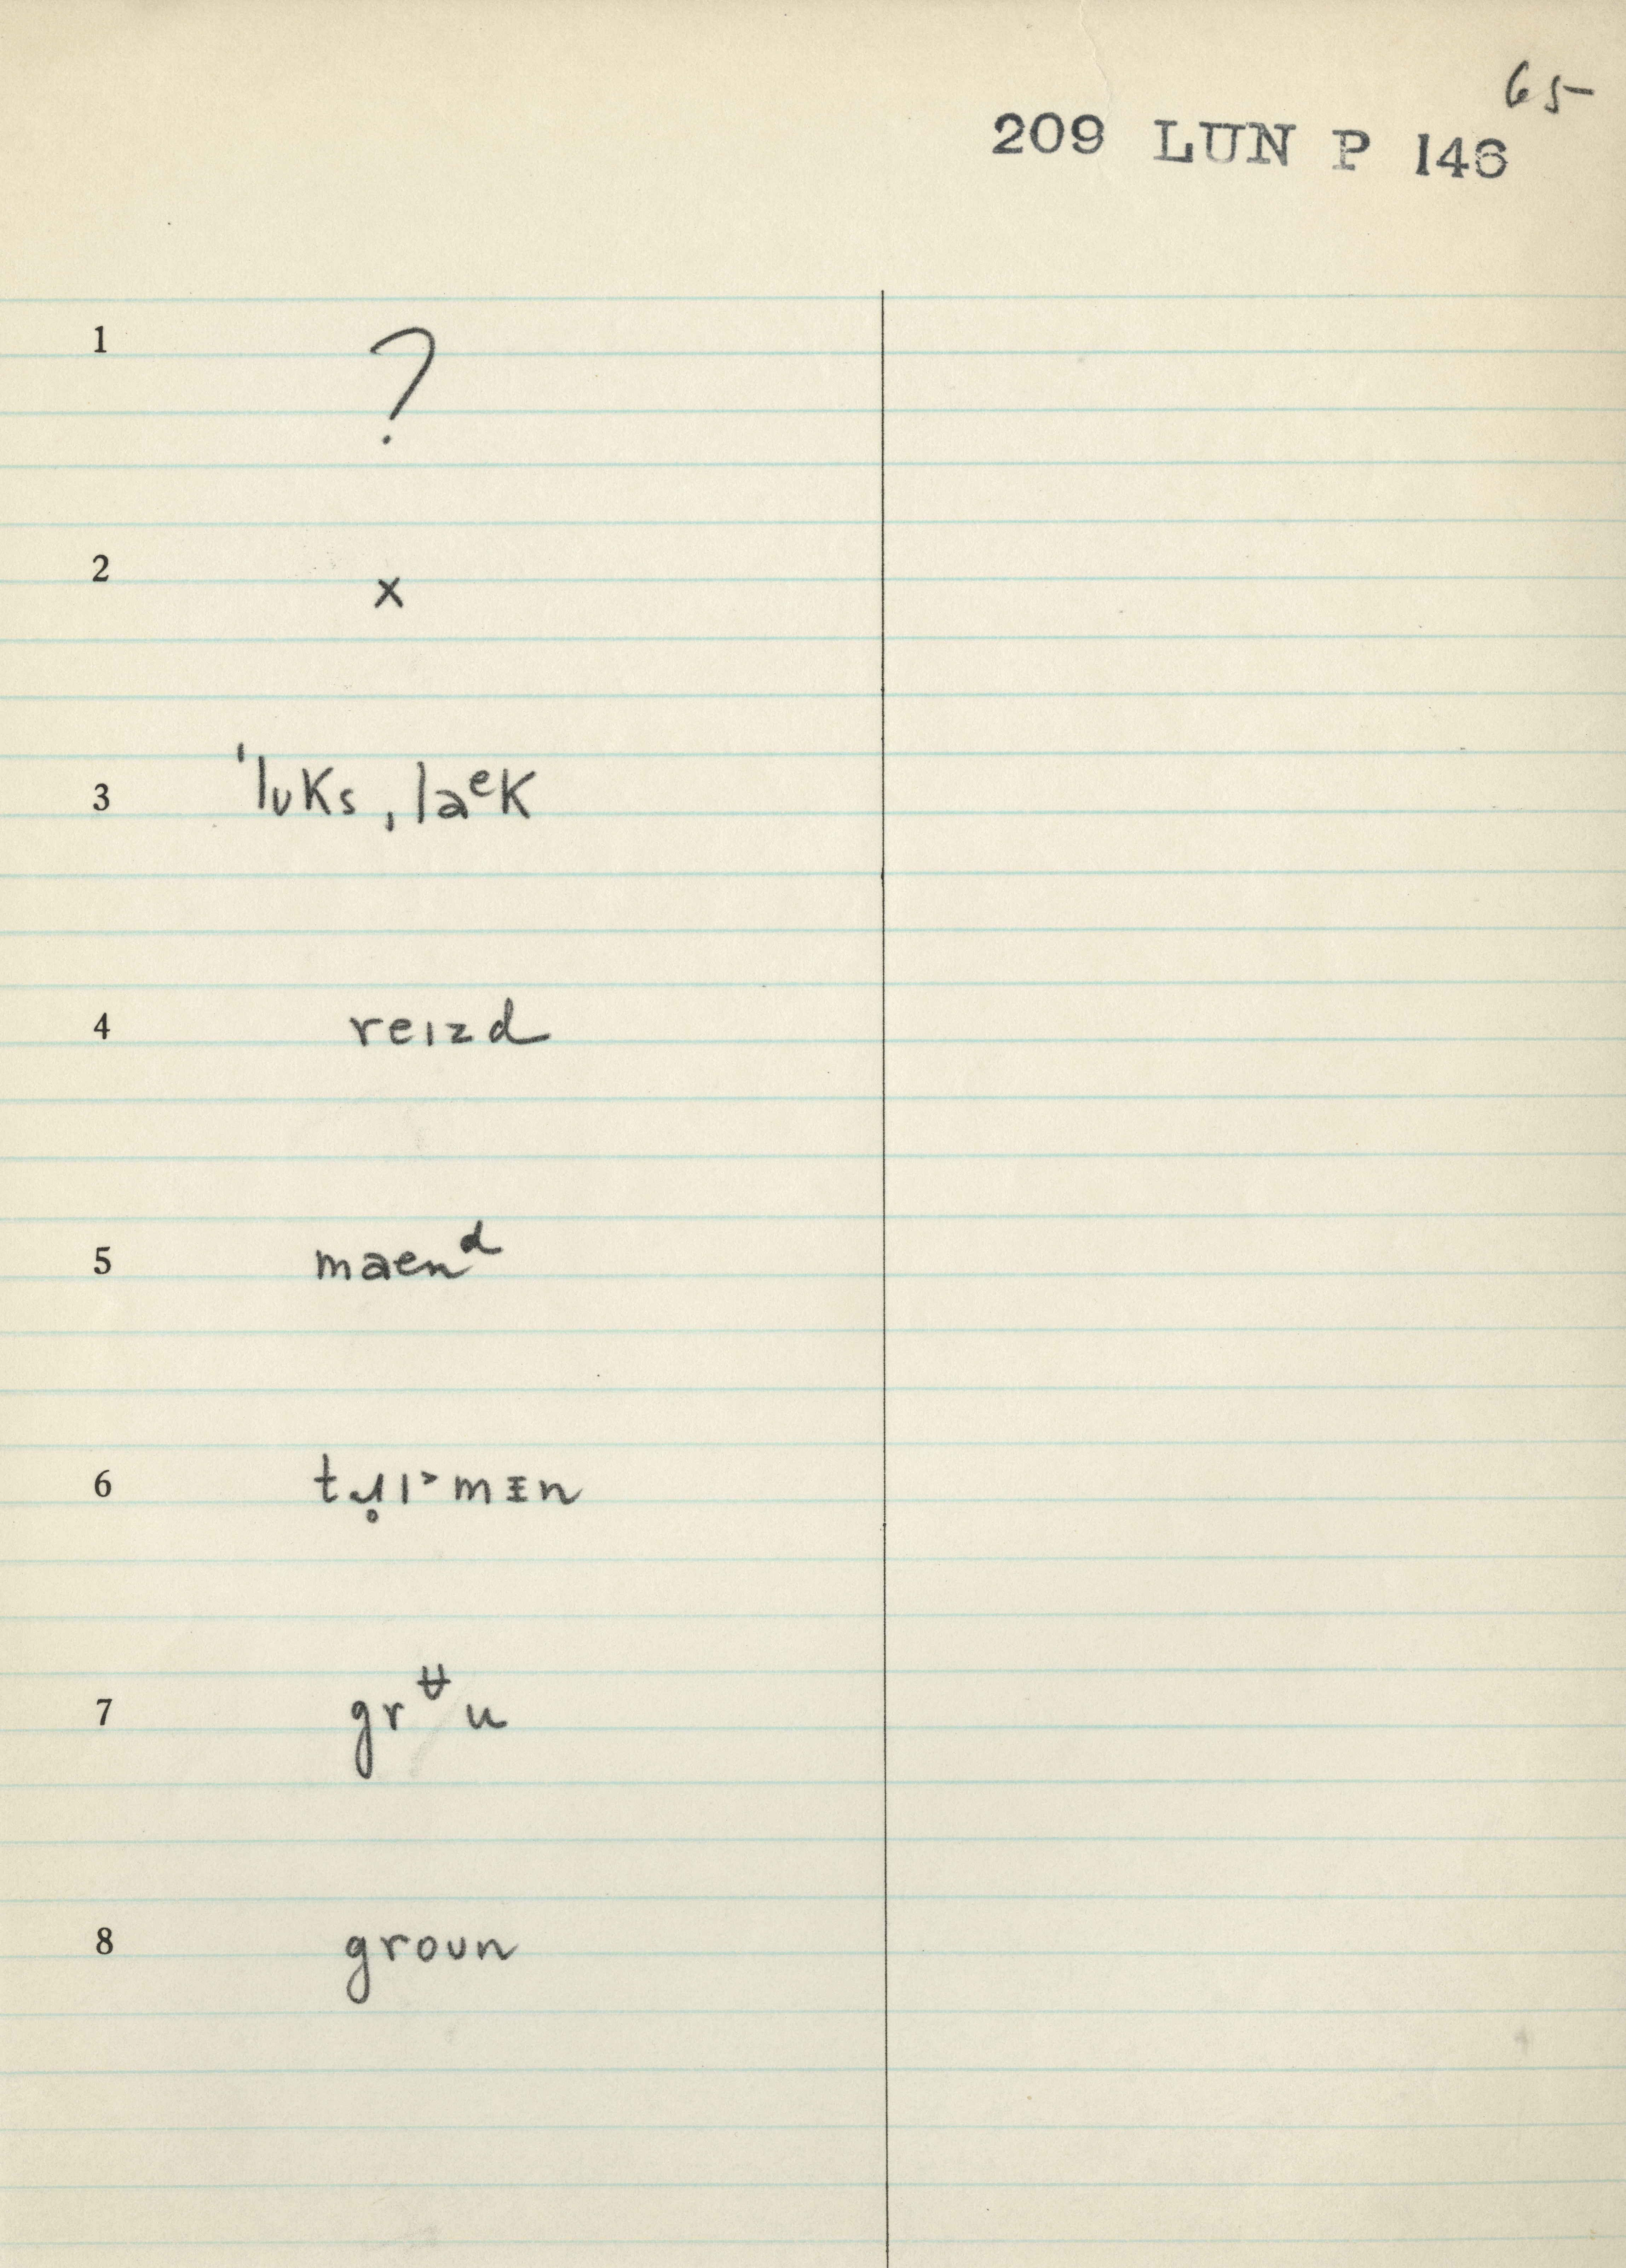 65
209 LUN P 146
1 ?
2 x
3 ˈlʊks ˌlaᵉk
4 reɪzd
5 maenᵈ
7 grᶶu
8 groʊn